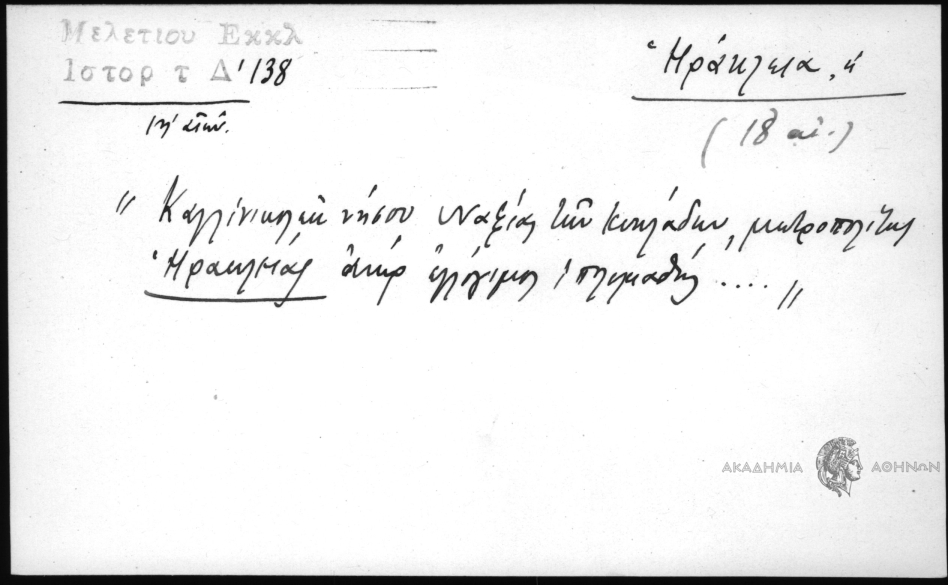 Μελετιου Εκκλ
Ιστορ τ Δ' 138
ιη' αἰών.
Ἡράκλεια, ἡ
(18 αἰ.)
" Καλλίνικος ἐκ νήσου Ναξίας τῶν Κυκλάδων, μητροπολίτης
Ἡρακλείας ἀνὴρ ἐλλόγιμος, πολυμαθής .... "
ΑΚΑΔΗΜΙΑ ΑΘΗΝΩΝ